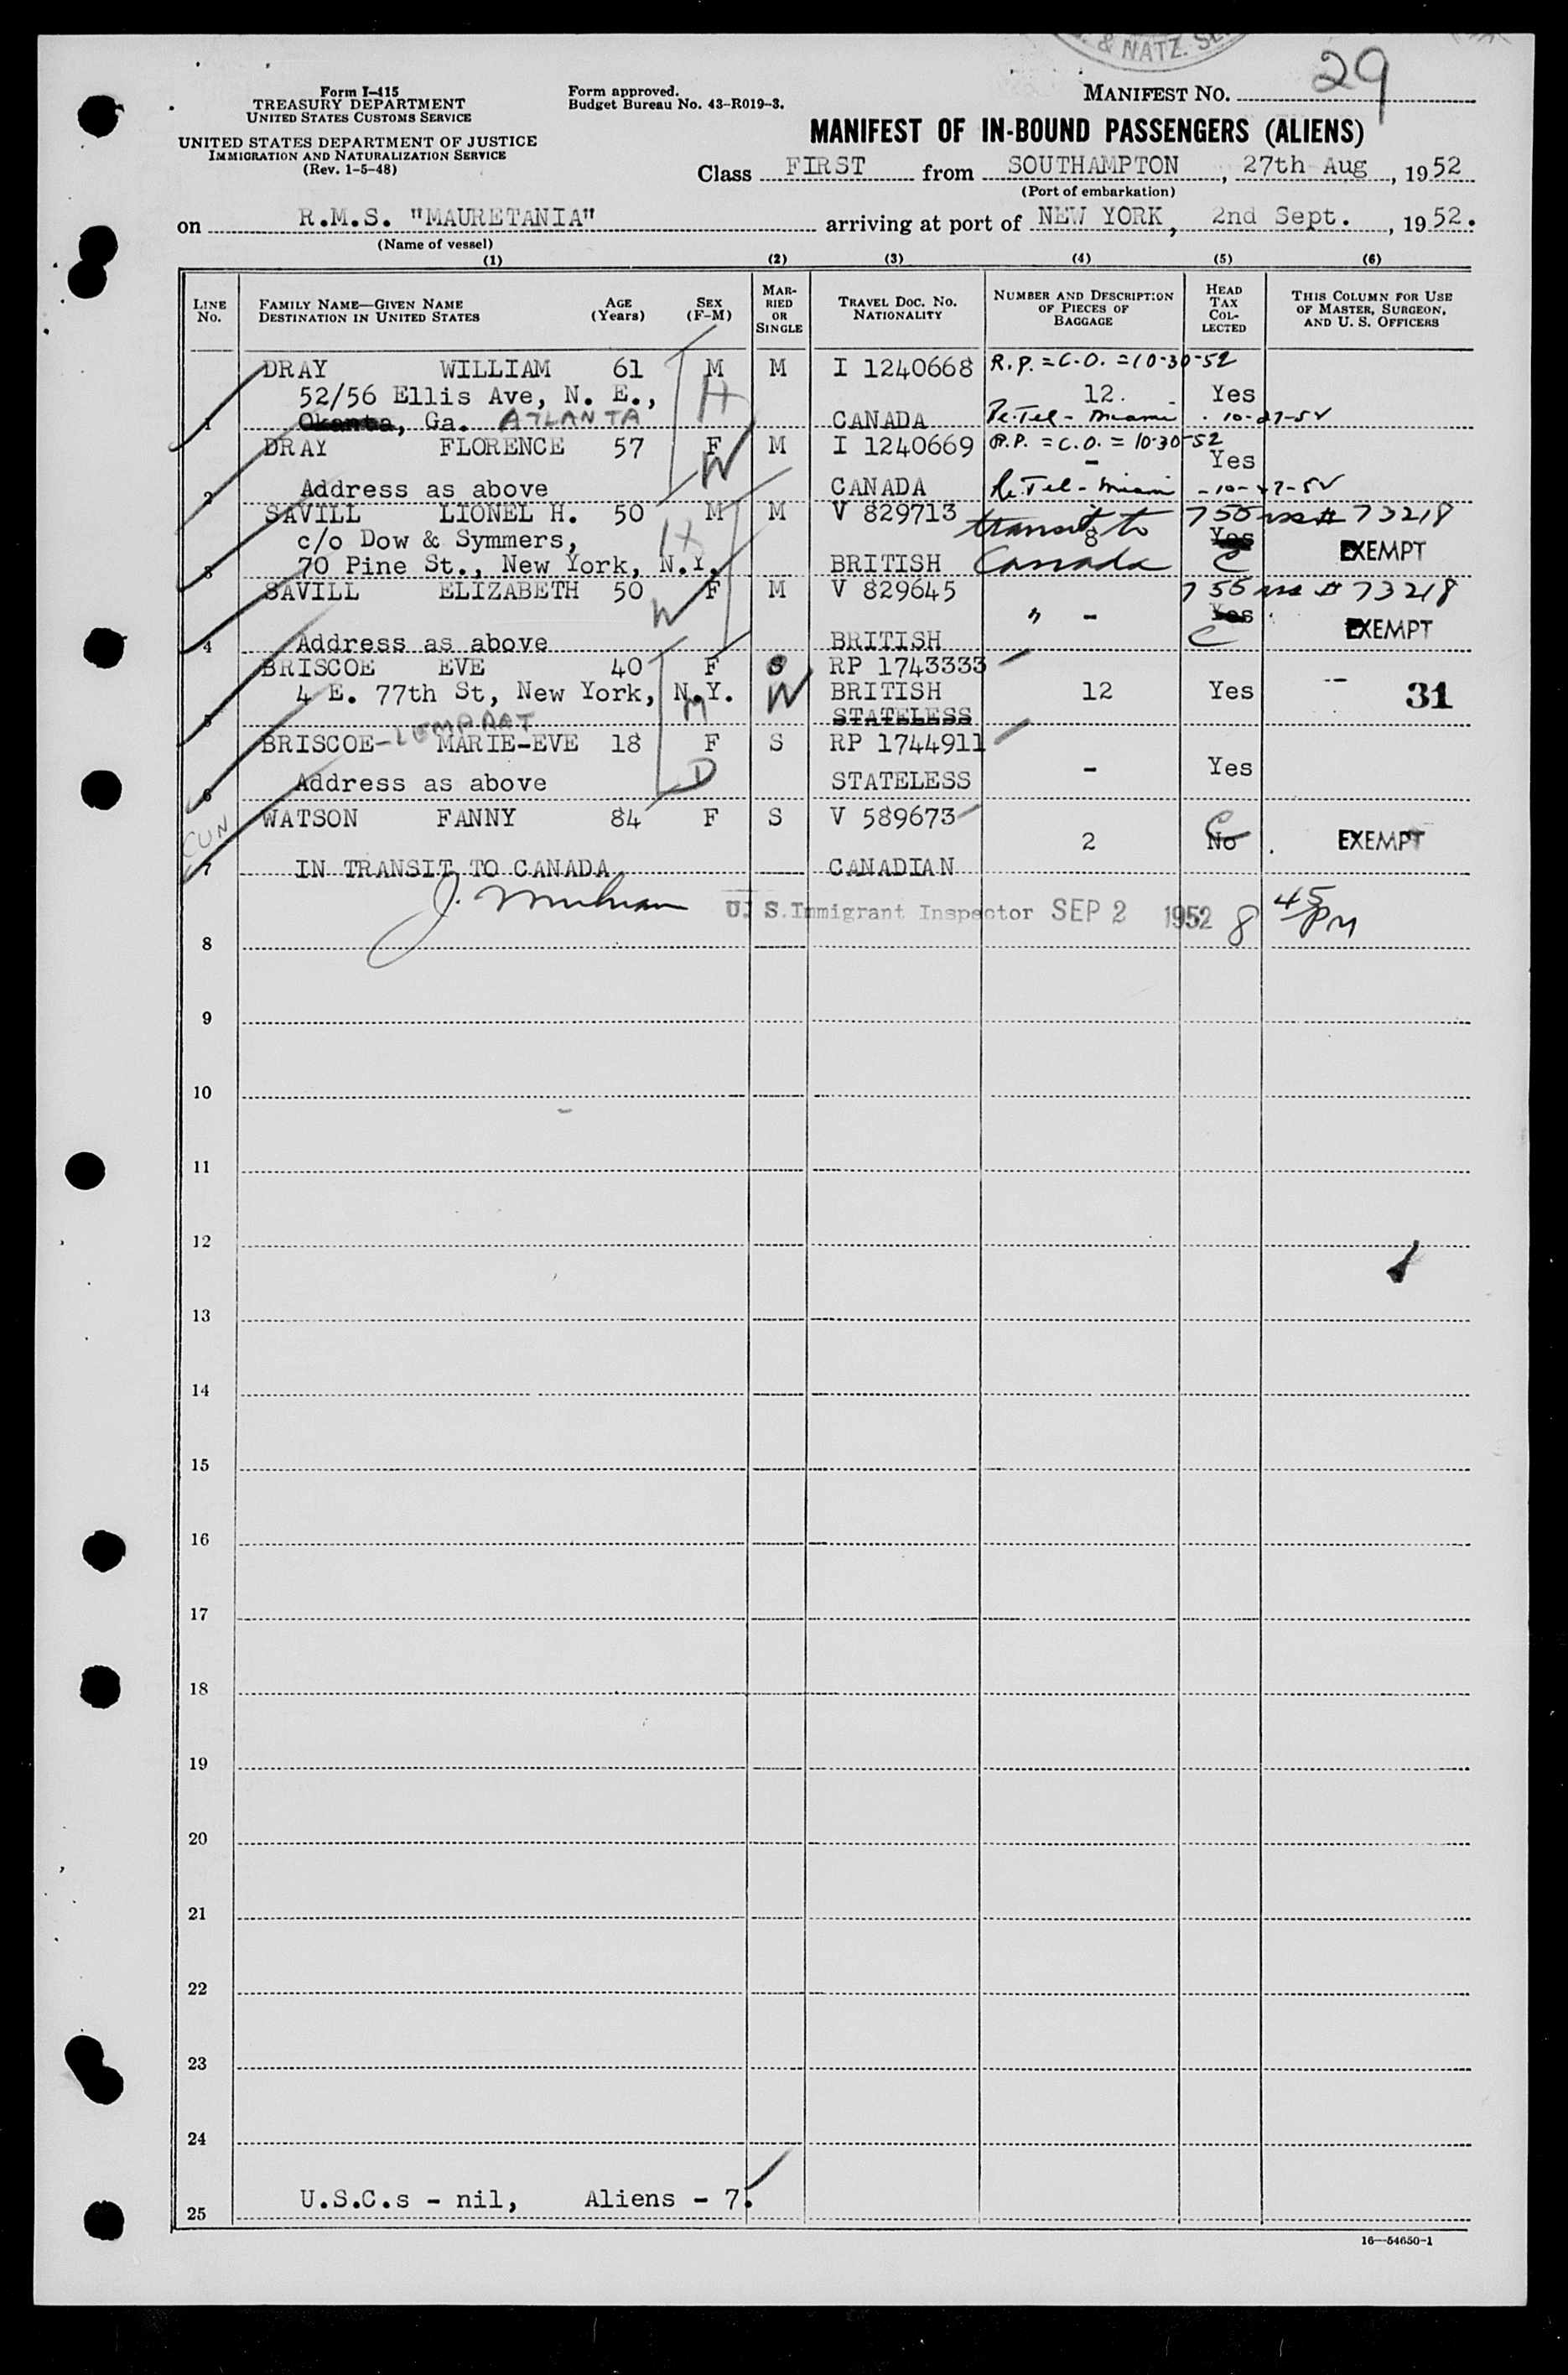 & NATZ. SE
29
Form I-415
TREASURY DEPARTMENT
UNITED STATES CUSTOMS SERVICE
UNITED STATES DEPARTMENT OF JUSTICE
IMMIGRATION AND NATURALIZATION SERVICE
(Rev. 1-5-48)
Form approved.
Budget Bureau No. 43-R019-3.
MANIFEST NO.
MANIFEST OF IN-BOUND PASSENGERS (ALIENS)
Class FIRST from SOUTHAMPTON, 27th Aug, 1952
(Port of embarkation)
on R.M.S. "MAURETANIA" arriving at port of NEW YORK, 2nd Sept., 1952.
(Name of vessel)
(1) (2) (3) (4) (5) (6)
LINE NO. FAMILY NAME—GIVEN NAME DESTINATION IN UNITED STATES AGE (Years) SEX (F-M) MARRIED OR SINGLE TRAVEL DOC. NO. NATIONALITY NUMBER AND DESCRIPTION OF PIECES OF BAGGAGE HEAD TAX COLLECTED THIS COLUMN FOR USE OF MASTER, SURGEON, AND U. S. OFFICERS
DRAY WILLIAM 61 M M I 1240668 R.P. = C.O. = 10-30-52
52/56 Ellis Ave, N. E., H 12. Yes
1 Okanta, Ga. ATLANTA CANADA Re.Tel - Miami 10-27-52
DRAY FLORENCE 57 F M I 1240669 R.P. = C.O. = 10-30-52
W - Yes
2 Address as above CANADA Re.Tel - Miami -10-27-52
SAVILL LIONEL H. 50 M M V 829713 transit to 755 # 73218
c/o Dow & Symmers, H 8 Yes EXEMPT
3 70 Pine St., New York, N.Y. BRITISH Canada C
SAVILL ELIZABETH 50 F M V 829645 755 # 73218
W " - Yes EXEMPT
4 Address as above BRITISH C
BRISCOE EVE 40 F S RP 1743333
4 E. 77th St, New York, N.Y. M W BRITISH 12 Yes -- 31
5 STATELESS
BRISCOE- LOMPART MARIE-EVE 18 F S RP 1744911
D - Yes
6 Address as above STATELESS
CUN WATSON FANNY 84 F S V 589673 C
2 No EXEMPT
7 IN TRANSIT TO CANADA CANADIAN
J. U. S. Immigrant Inspector SEP 2 1952 8 45/PM
8
9
10
11
12
13
14
15
16
17
18
19
20
21
22
23
24
25 U.S.C.s - nil, Aliens - 7.
16—54650-1